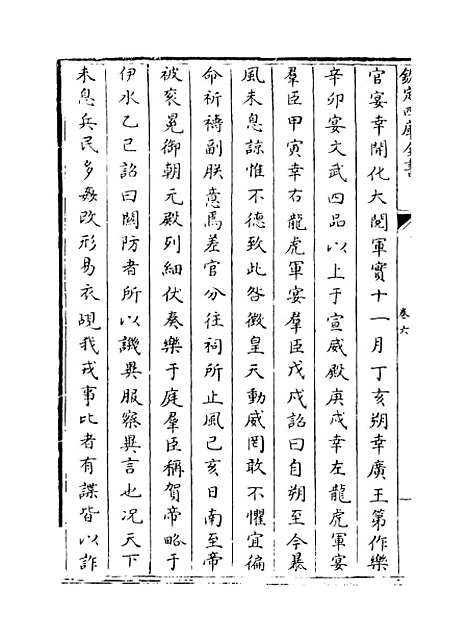 欽定四庫全書
卷六
官宴幸開化大閱軍實十一月丁亥朔幸廣王第作樂
辛卯宴文武四品以上于宣威殿庚戌幸左龍虎軍宴
羣臣甲寅幸右龍虎軍宴羣臣戊戌詔曰自朔至今暴
風未息諒惟不德致此咎徵皇天動威罔敢不懼宜徧
命祈禱副朕意焉差官分往祠所止風己亥日南至帝
被衮冕御朝元殿列細仗奏樂于庭羣臣稱賀帝略于
伊水乙巳詔曰關防者所以譏異服察異言也況天下
未息兵民多姦改形易衣覘我戎事比者有諜皆以詐